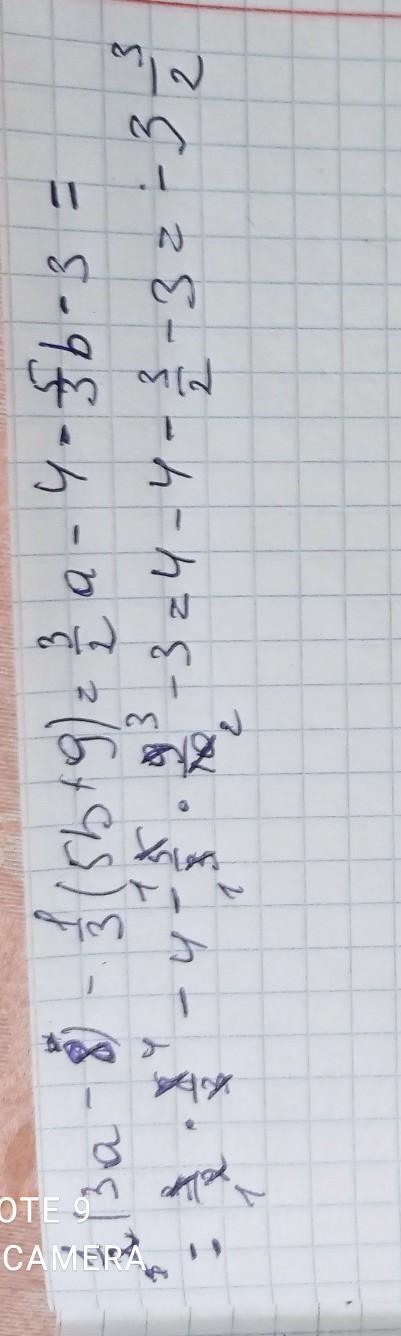 (3a - 8) - 1/3 (5b + 9) = 3/2 a - 4 - 5/3 b - 3 =
= 3/2 · 8/3 - 4 - 5/3 · 9/10 - 3 = 4 - 4 - 3/2 - 3 = - 3 3/2
OTE 9
CAMERA